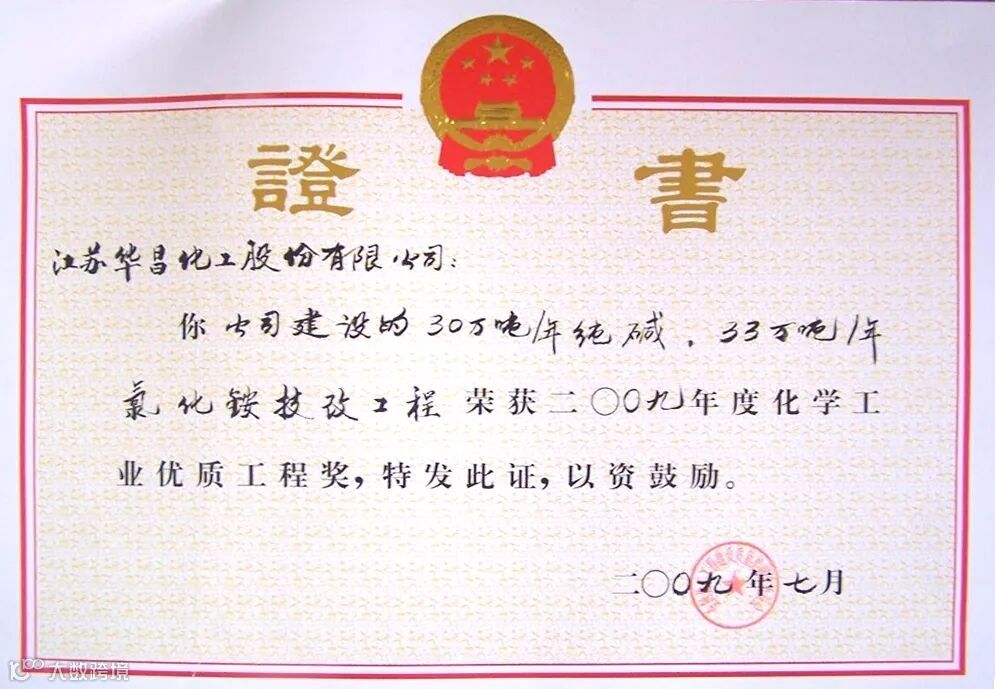 證書
江苏华昌化工股份有限公司：
你公司建设的30万吨/年纯碱、33万吨/年
氯化铵技改工程荣获二〇〇九年度化学工
业优质工程奖，特发此证，以资鼓励。
二〇〇九年七月
大数跨境